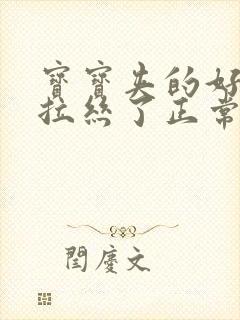 寶寶夹的好
拉絲了正常
閆慶文